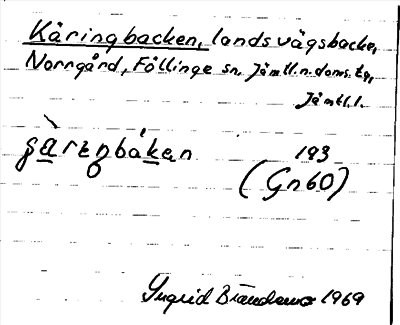 Käringbacken, landsvägsbacke,
Norrgård, Föllinge sn, Jämtl.n.doms.tg,
Jämtl.l.
gàrɛŋbákan 193
(Gn60)
Ingrid 1969